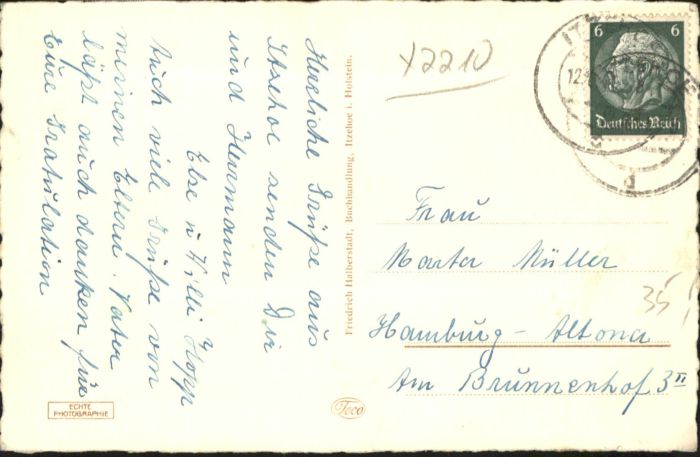 Herzliche Grüße aus
Itzehoe senden Dir
und Hermann
Else u Willi Kopp
Auch viele Grüße von
meinen Eltern. Vater
läßt auch danken für
Eure Gratulation
Friedrich Halberstadt, Buchhandlung, Itzehoe i. Holstein.
ECHTE
PHOTOGRAPHIE
Teco
x2210
6 6
Deutsches Reich
12.
Frau
Marta Müller
35
Hamburg - Altona
Am Brunnenhof 3 II